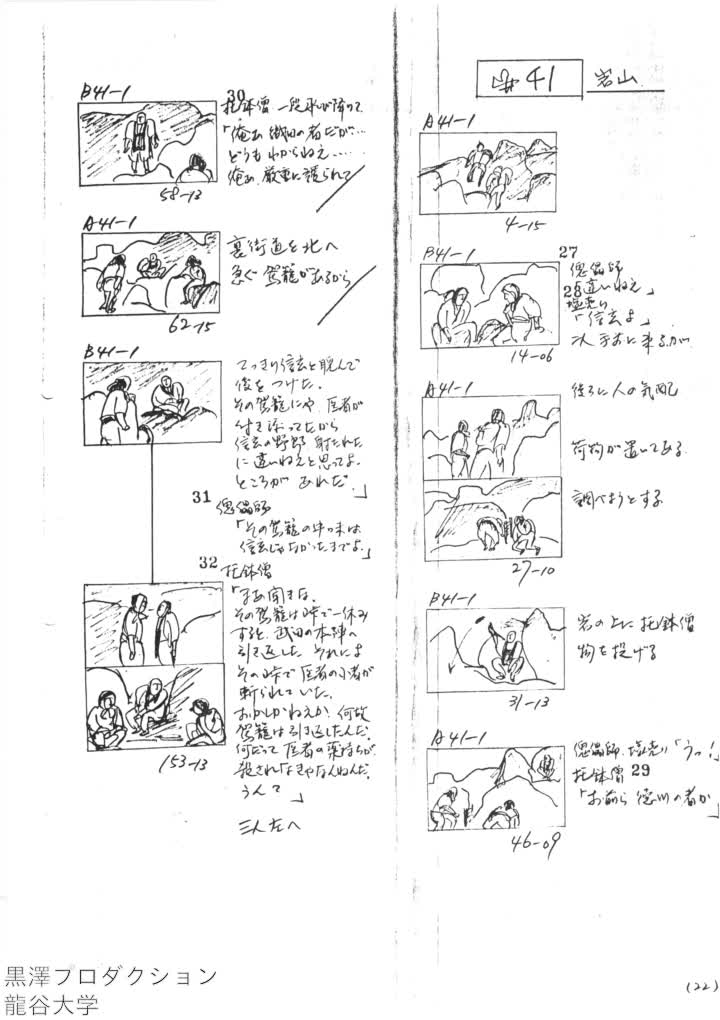 #41 岩山
A41-1
4-15
B41-1
27
傀儡師
28 違いねえ」
塩売り
「信玄よ」
二人手前に来るが
14-06
A41-1
後ろに人の気配
荷物が置いてある
調べようとする
27-10
B41-1
岩の上に托鉢僧
物を投げる
31-13
A41-1
傀儡師、塩売り「うっ!」
托鉢僧 29
「お前ら徳川の者か」
46-09
B41-1
30
托鉢僧 一段飛び降りて
「俺あ織田の者だが…
どうもわからねえ……
俺あ、厳重に護られて
58-13
A41-1
裏街道を北へ
急ぐ駕籠があるから
62-15
B41-1
てっきり信玄と睨んで
後をつけた。
その駕籠にや、医者が
付き添ってたから
信玄の野郎 射たれた
に違いねえと思ってよ。
ところが あれだ。」
31
傀儡師
「その駕籠の中味は
信玄じゃなかったまでよ。」
32
托鉢僧
「まあ聞きな。
その駕籠は峠で一休み
すると、武田の本陣へ
引き返した それによ
その峠で医者の小者が
斬られていた。
おかしかねえか、何故
駕籠は引き返したんだ。
何だって医者の薬持ちが
殺されなきゃなんねんだ。
うんて」
153-13
三人左へ
(22)
黒澤プロダクション
龍谷大学